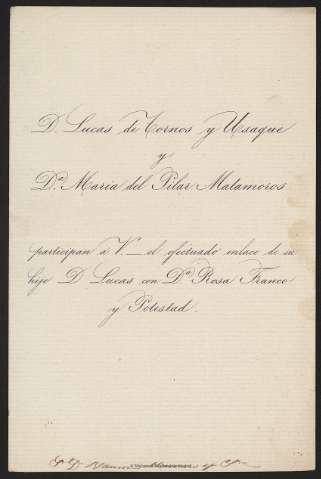 D. Lucas de Tornos y Usaque
y
D.ª Maria del Pilar Matamoros
participan á V._ el efectuado enlace de su
hijo D. Lucas con D.ª Rosa Franco
y Potestad.